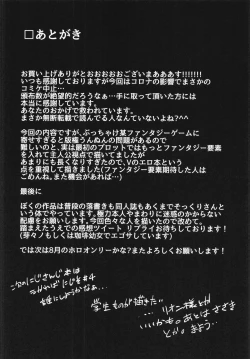 □あとがき
お買い上げありがとおおおおおございまあああす!!!!!!!
いつも感謝しておりますが、今回はコロナの影響でまさかの
コミケ中止…
頒布数が絶望的だろうなぁ…手に取って頂いた方には
本当に感謝しています。
あなたのおかげで救われています。
まさか無断転載で読んでる人なんていないよね?^^
今回の内容ですが、ぶっちゃけ某ファンタジーゲームに
寄せすぎると版権うんぬんの問題があるので
難しいのと、実は最初のプロットではもっとファンタジー要素
を入れて主人公視点で書いていましたが、
とても長くなりすぎるので、Vのエロ本という
点を重視して描きました(ファンタジー要素期待した人は
ごめんね。また機会があれば…)
最後に
ぼくの作品は普段の落書きも同人誌もあくまでそっくりさんと
いう体でやっています。極力本人やまわりに迷惑のかからない
配慮もお願いします。今回色々な人を描いたので、それも
踏まえたうえで感想ツイート リプライお待ちしております!
では次は8月のホロオンリーかな?またよろしくお願いします!
学生ものが描きたい…